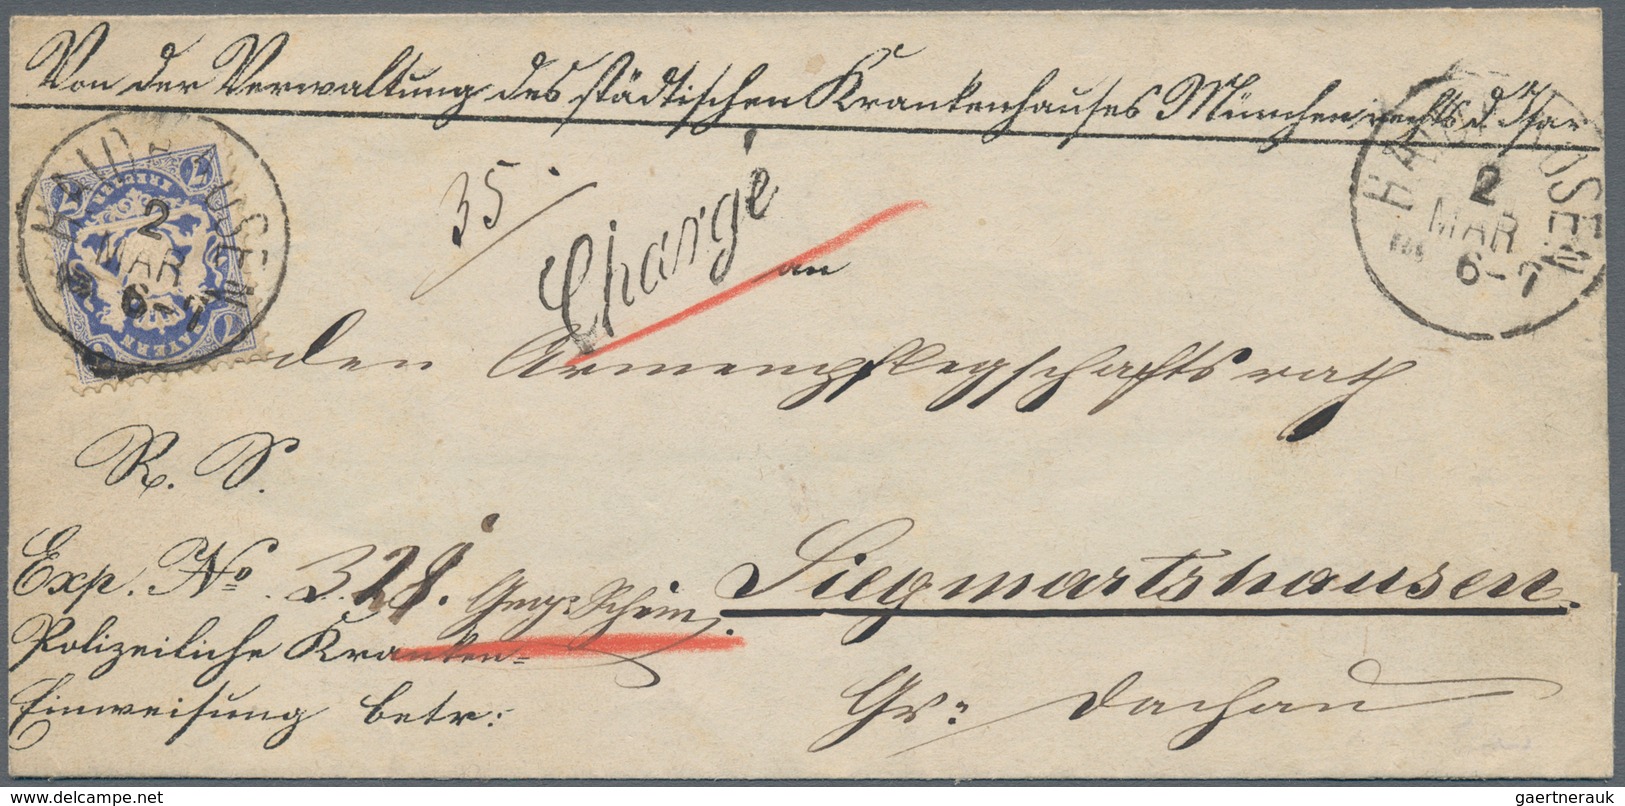 Von der Verwaltung des städtischen Krankenhauses München rechts d. Isar
HAIDHAUSEN
2
MAR
6-7
7
KREUZER
BAYERN
HAIDHAUSEN
2
MAR
6-7
35.
Chargé
an
den Armenpflegschaftsrath
R. S.
Exp. No. 328. Geg. Schein.
Siegmartshausen.
Polizeiliche Kranken=
Einweisung betr:
Gr: Dachau
gaertnerauk